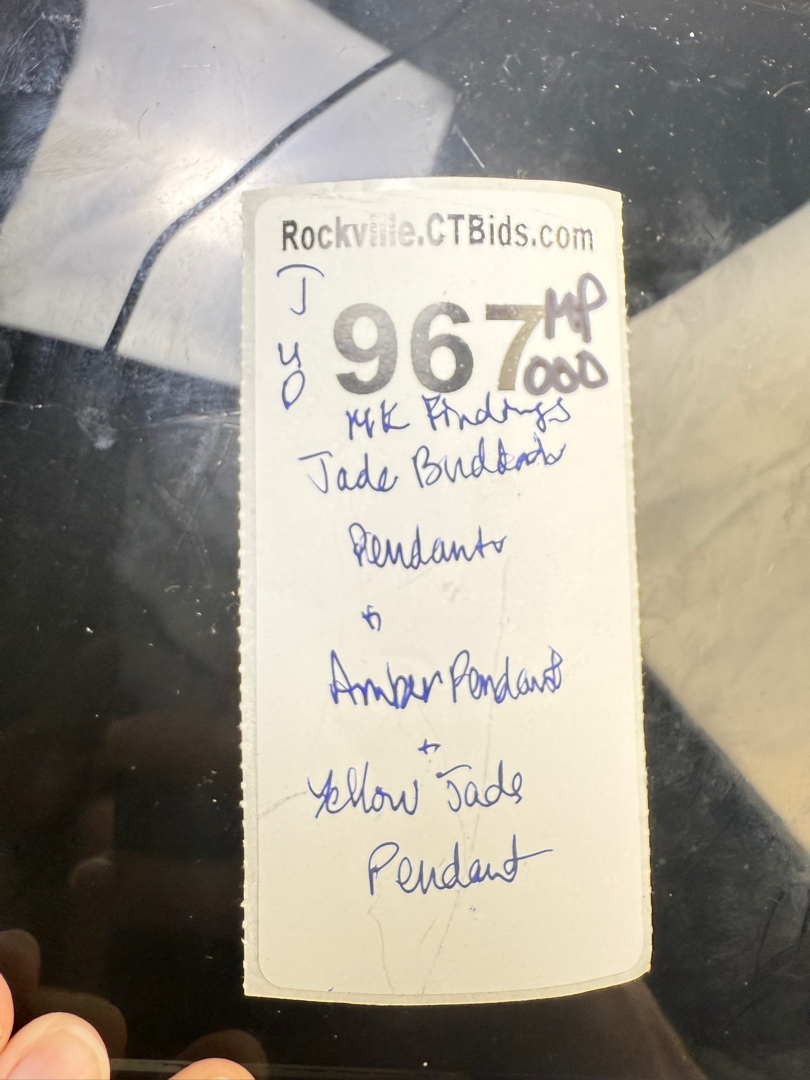 Rockville.CTBids.com
J
40
967
MP
000
MK Findings
Jade Buddah
Pendants
+
Amber Pendant
+
Yellow Jade
Pendant